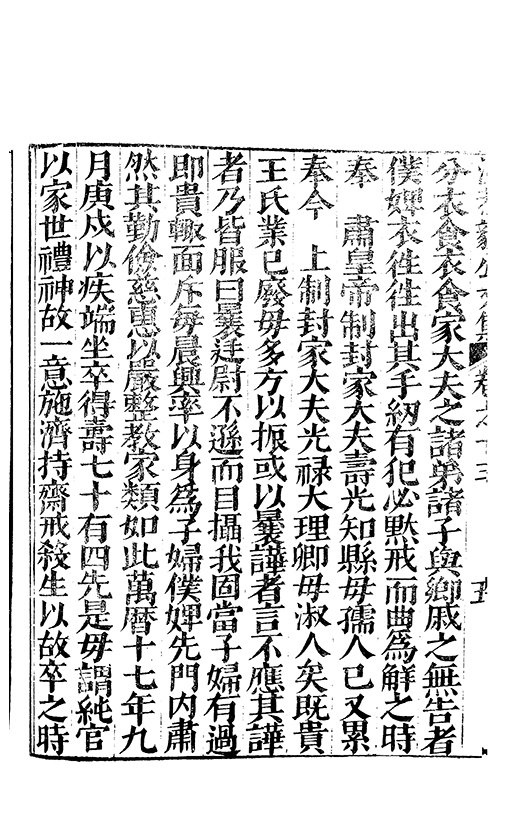 分衣食衣食家大夫之諸弟諸子與鄉戚之無告者
僕婢衣徃徃出其手紉有犯必黙戒而曲爲解之時
奉　肅皇帝制封家大夫壽光知縣毋孺人已又累
奉今　上制封家大夫光禄大理卿毋淑人矣既貴
王氏業已廢毋多方以振或以曩譁者言不應其譁
者乃皆服曰曩廷尉不遜而目攝我固當子婦有過
即貴輙面斥每晨興率以身爲子婦僕婢先門内肅
然其勤儉慈惠以嚴整教家類如此萬曆十七年九
月庚戍以疾端坐卒得壽七十有四先是毋謂純官
以家世禮神故一意施濟持齋戒殺生以故卒之時